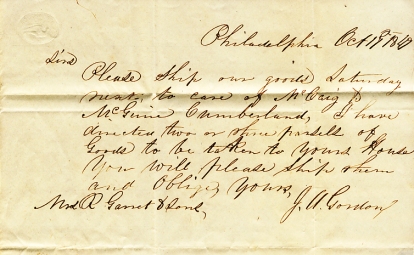 Philadelphia Oct 19th
Sirs
Please Ship our goods Saturday
next, to care of McCaig &
McGuire Cumberland, I have
directed two or three parsels of
Goods to be taken to yours House
You will please Ship them
and Oblige, Yours,
R Garret & Sons, J. A. Gordon